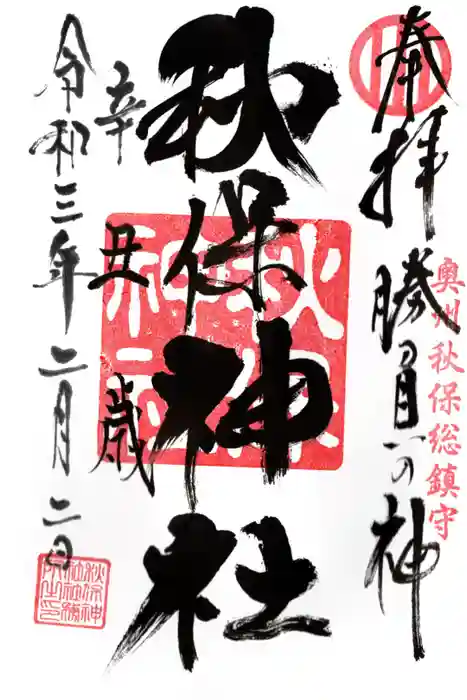 奉拝 勝負の神
奥州秋保総鎮守
秋保神社
辛丑歳
令和三年二月二日